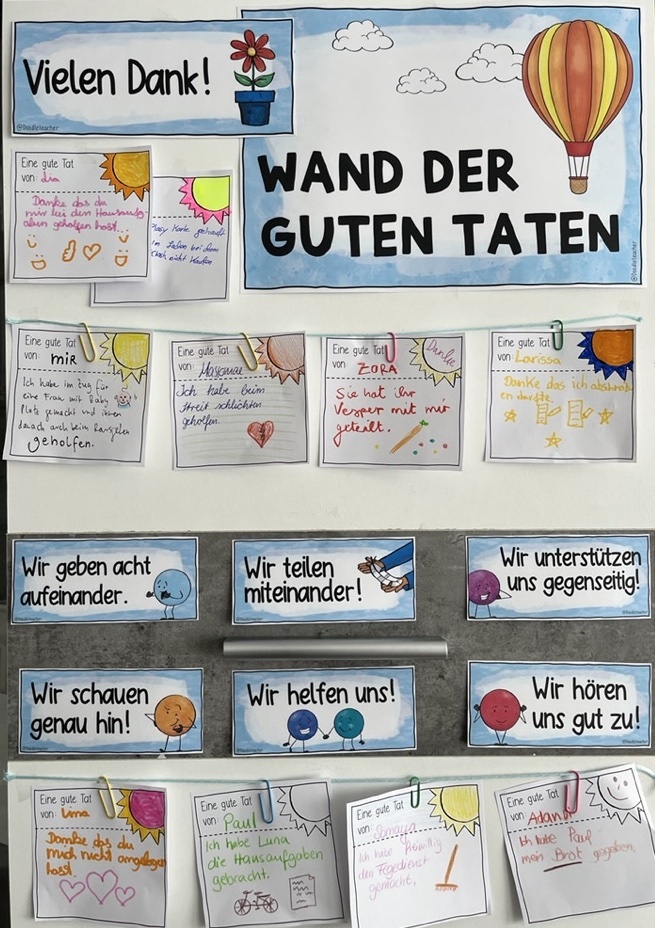 Vielen Dank!
@Doodleteacher
WAND DER
GUTEN TATEN
@Doodleteacher
Eine gute Tat
von: Lia
Danke das du
mir bei den Hausaufg-
aben geholfen hast...
im Laden bei dem
Eine gute Tat
von: mir
Ich habe im Zug für
eine Frau mit Baby
Platz gemacht und ihnen
danach auch beim
geholfen.
Eine gute Tat
von:
Ich habe beim
Streit schlichten
geholfen.
Eine gute Tat
von: ZORA
Danke
Sie hat ihr
Vesper mit mir
geteilt.
Eine gute Tat
von: Larissa
Danke das ich abschreib
en durfte.
Wir geben acht
aufeinander.
Wir teilen
miteinander!
Wir unterstützen
uns gegenseitig!
Wir schauen
genau hin!
Wir helfen uns!
Wir hören
uns gut zu!
Eine gute Tat
von: Lina
Danke das du
mich nicht angelogen
hast.
Eine gute Tat
von: Paul
Ich habe Luna
die Hausaufgaben
gebracht.
Eine gute Tat
von: Somaya
Ich habe freiwillig
den Fegedienst
gemacht.
Eine gute Tat
von:
Ich habe Paul
mein Brot gegeben.